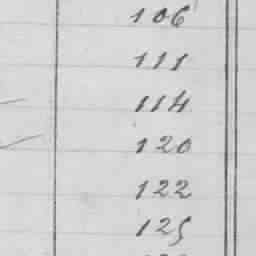 106
111
114
120
122
125